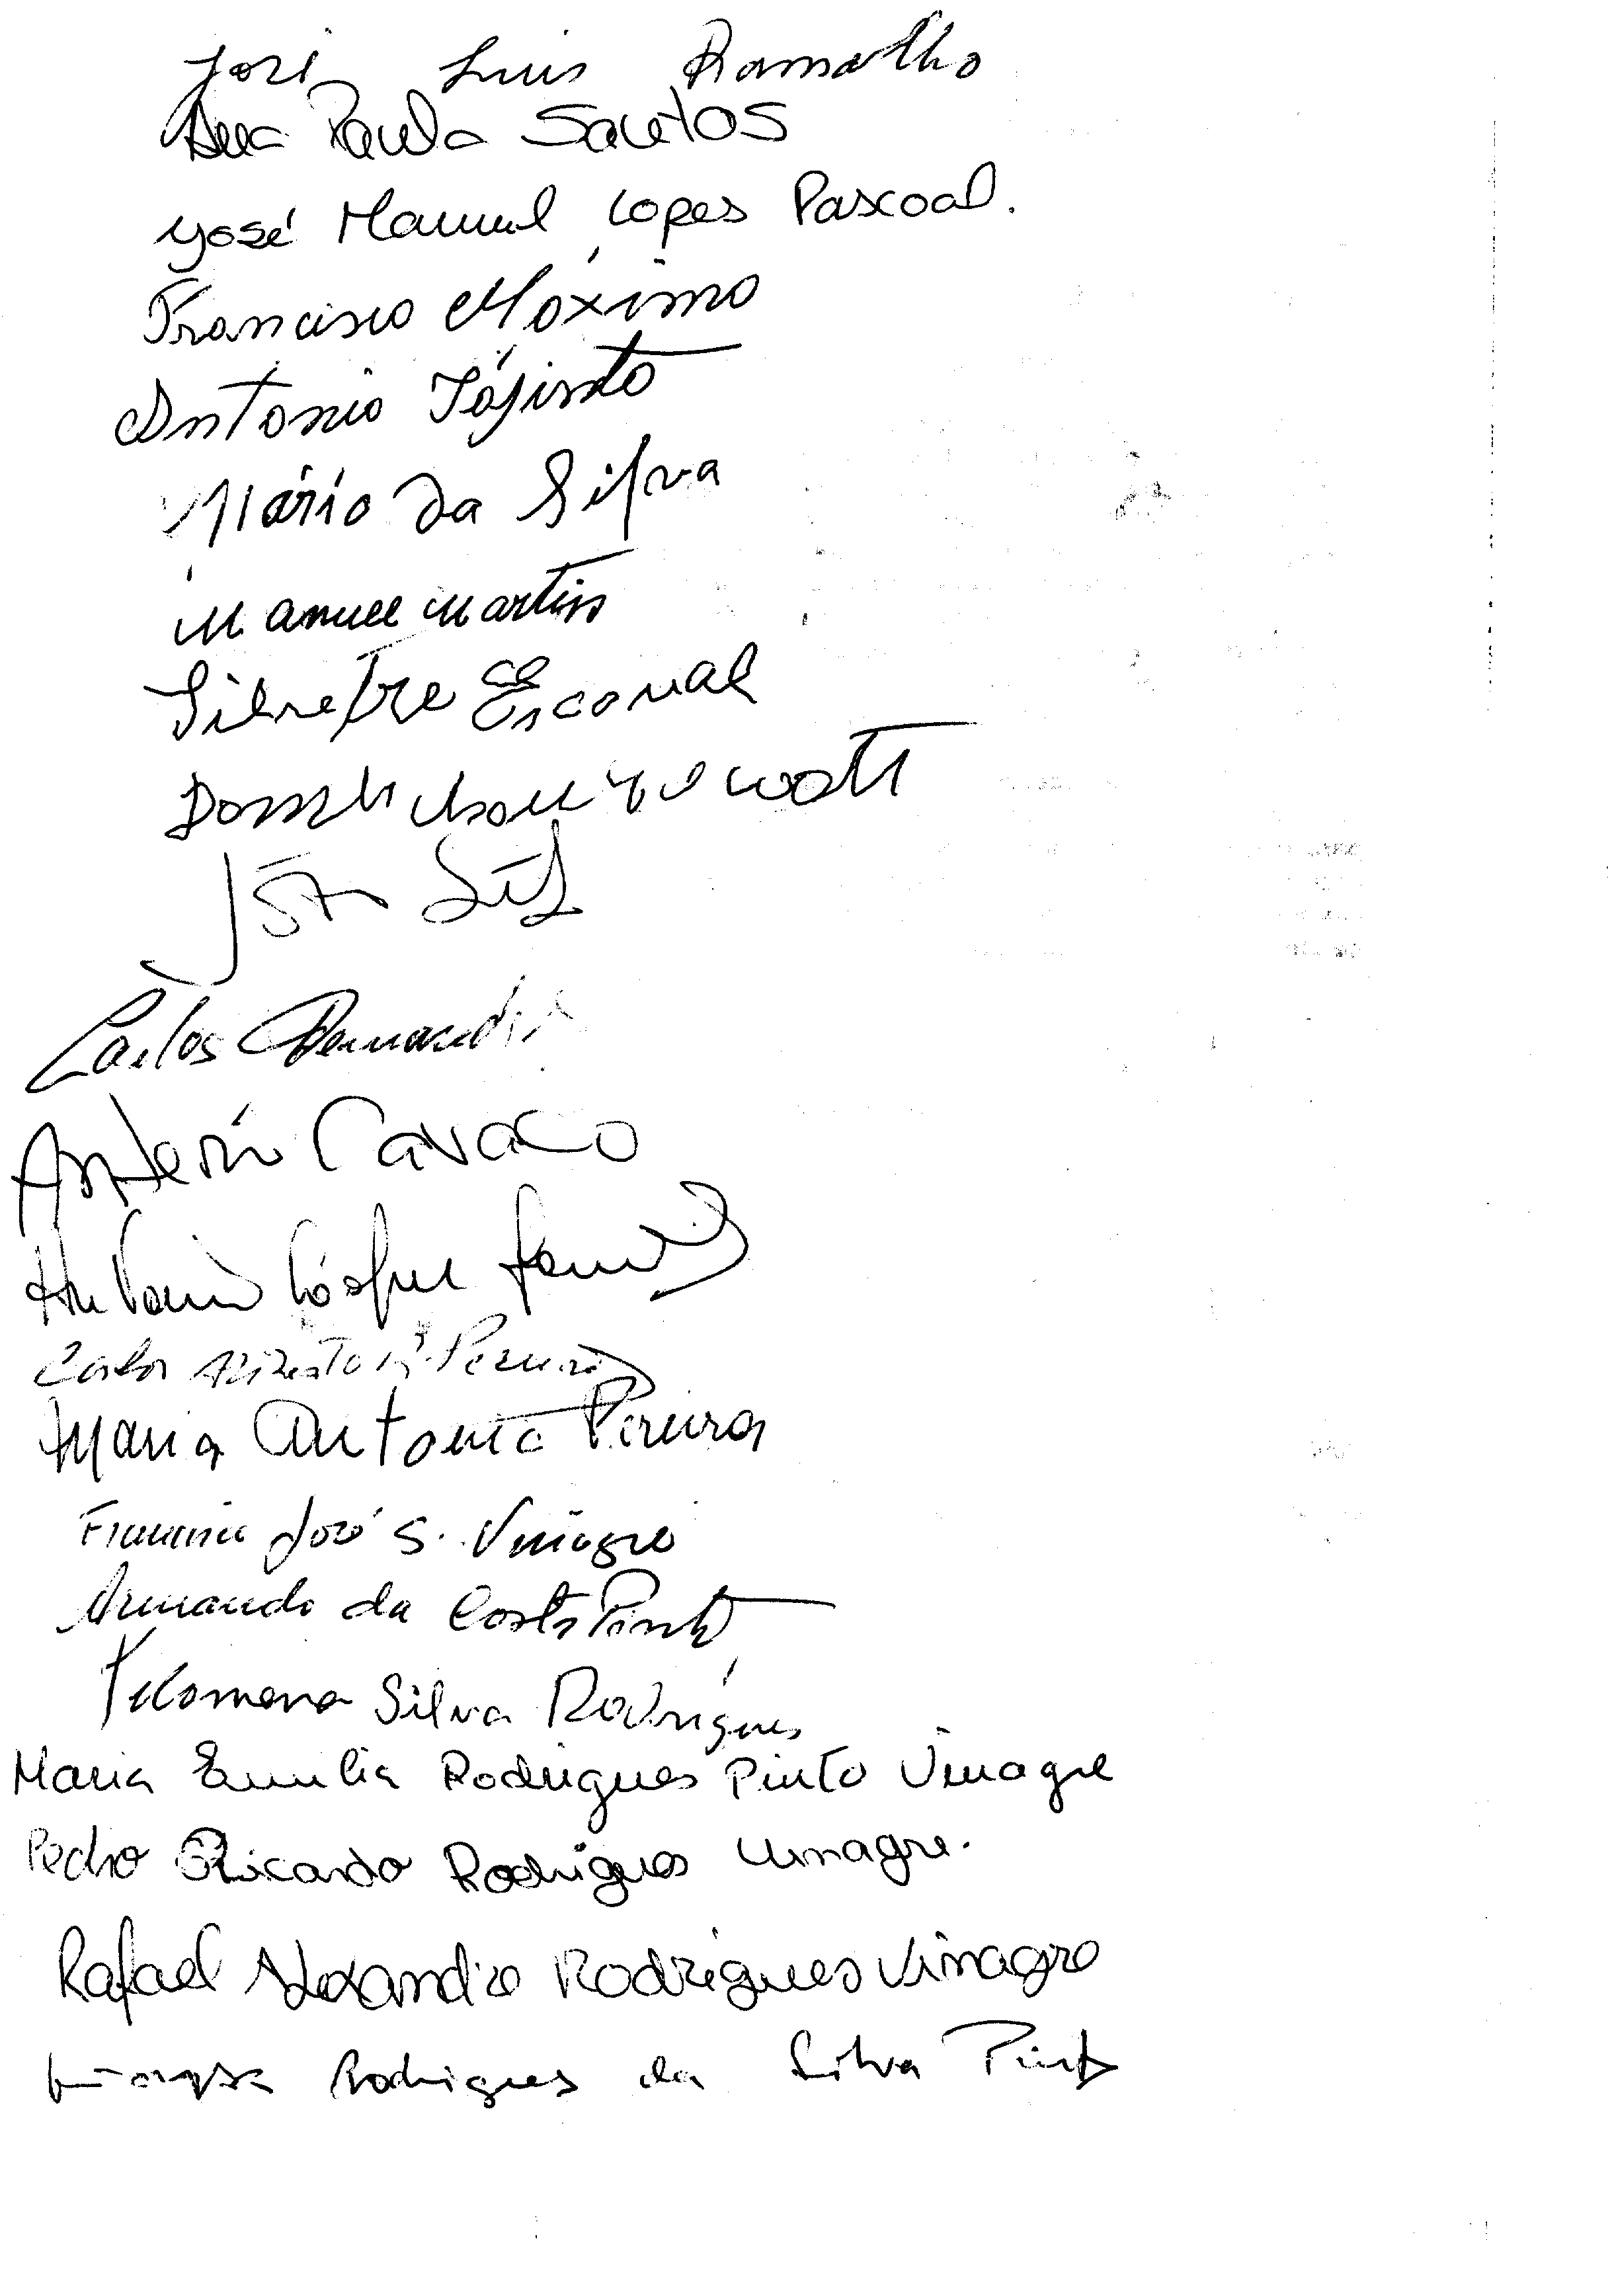 José Luis Ramalho
Ana Paula Santos
José Manuel Lopes Pascoal.
Francisco Máximo
Antonio
Mário da Silva
Manuel Martins
Silvestre Escoval
João
Carlos
Cavaco
António
Carlos Alberto Pereira
Maria Antonia Pereira
José S. Vinagre
Armando da Costa Pinto
Filomena Silva Rodrigues
Maria Emilia Rodrigues Pinto Vinagre
Pedro Ricardo Rodrigues Vinagre.
Rafael Alexandre Rodrigues Vinagre
Rodrigues da Silva Pinto